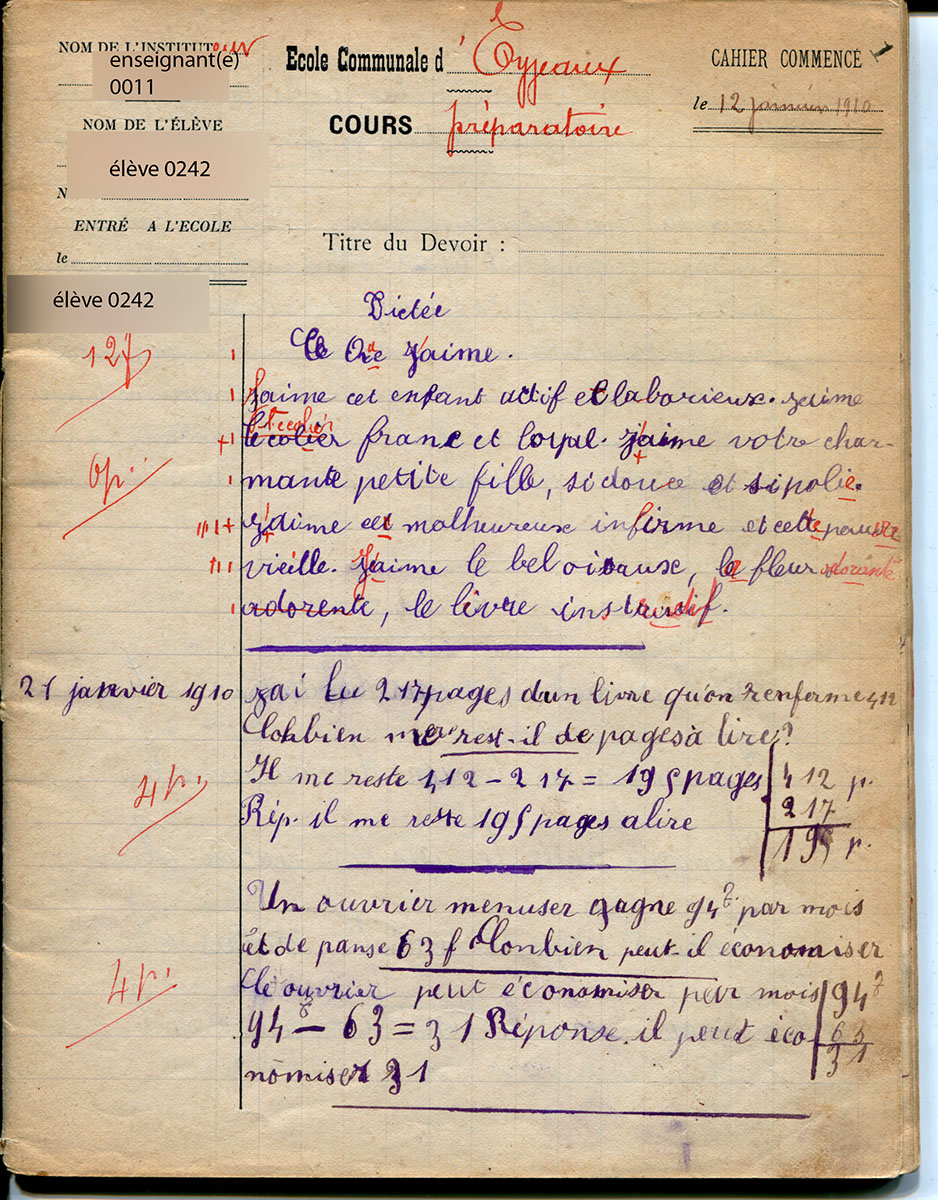 NOM DE L'INSTITUTeur
enseignant(e)
0011
NOM DE L'ÉLÈVE
élève 0242
N
ENTRÉ A L'ECOLE
le
élève 0242
Ecole Communale d'Eyjeaux
COURS préparatoire
CAHIER COMMENCÉ
le 12 janvier 1910
Titre du Devoir :
Dictée
Ce que j'aime.
12f
J'aime cet enfant actif et laborieux. j'aime
l'écolier franc et loyal. j'aime votre char-
0p.
mante petite fille, si douce et si polie.
j'aime cet malheureux infirme et cette pauvre
vieille. J'aime le bel oiseaux, la fleur odorante
adorente, le livre instructif.
21 janvier 1910
jai lu 217 pages dun livre qu'on renferme 412
Conbien me rest-il de pages à lire?
4p.
Il me reste 412 - 217 = 195 pages
412 p.
217
195 p.
Rép. il me reste 195 pages a lire
Un ouvrier menuser gagne 94f par mois
et de panse 63 f Conbien peut-il économiser
4p.
Ce ouvrier peut économiser par mois
94f
63
31
94f - 63 = 31 Réponse. il peut éco-
nomiser 31